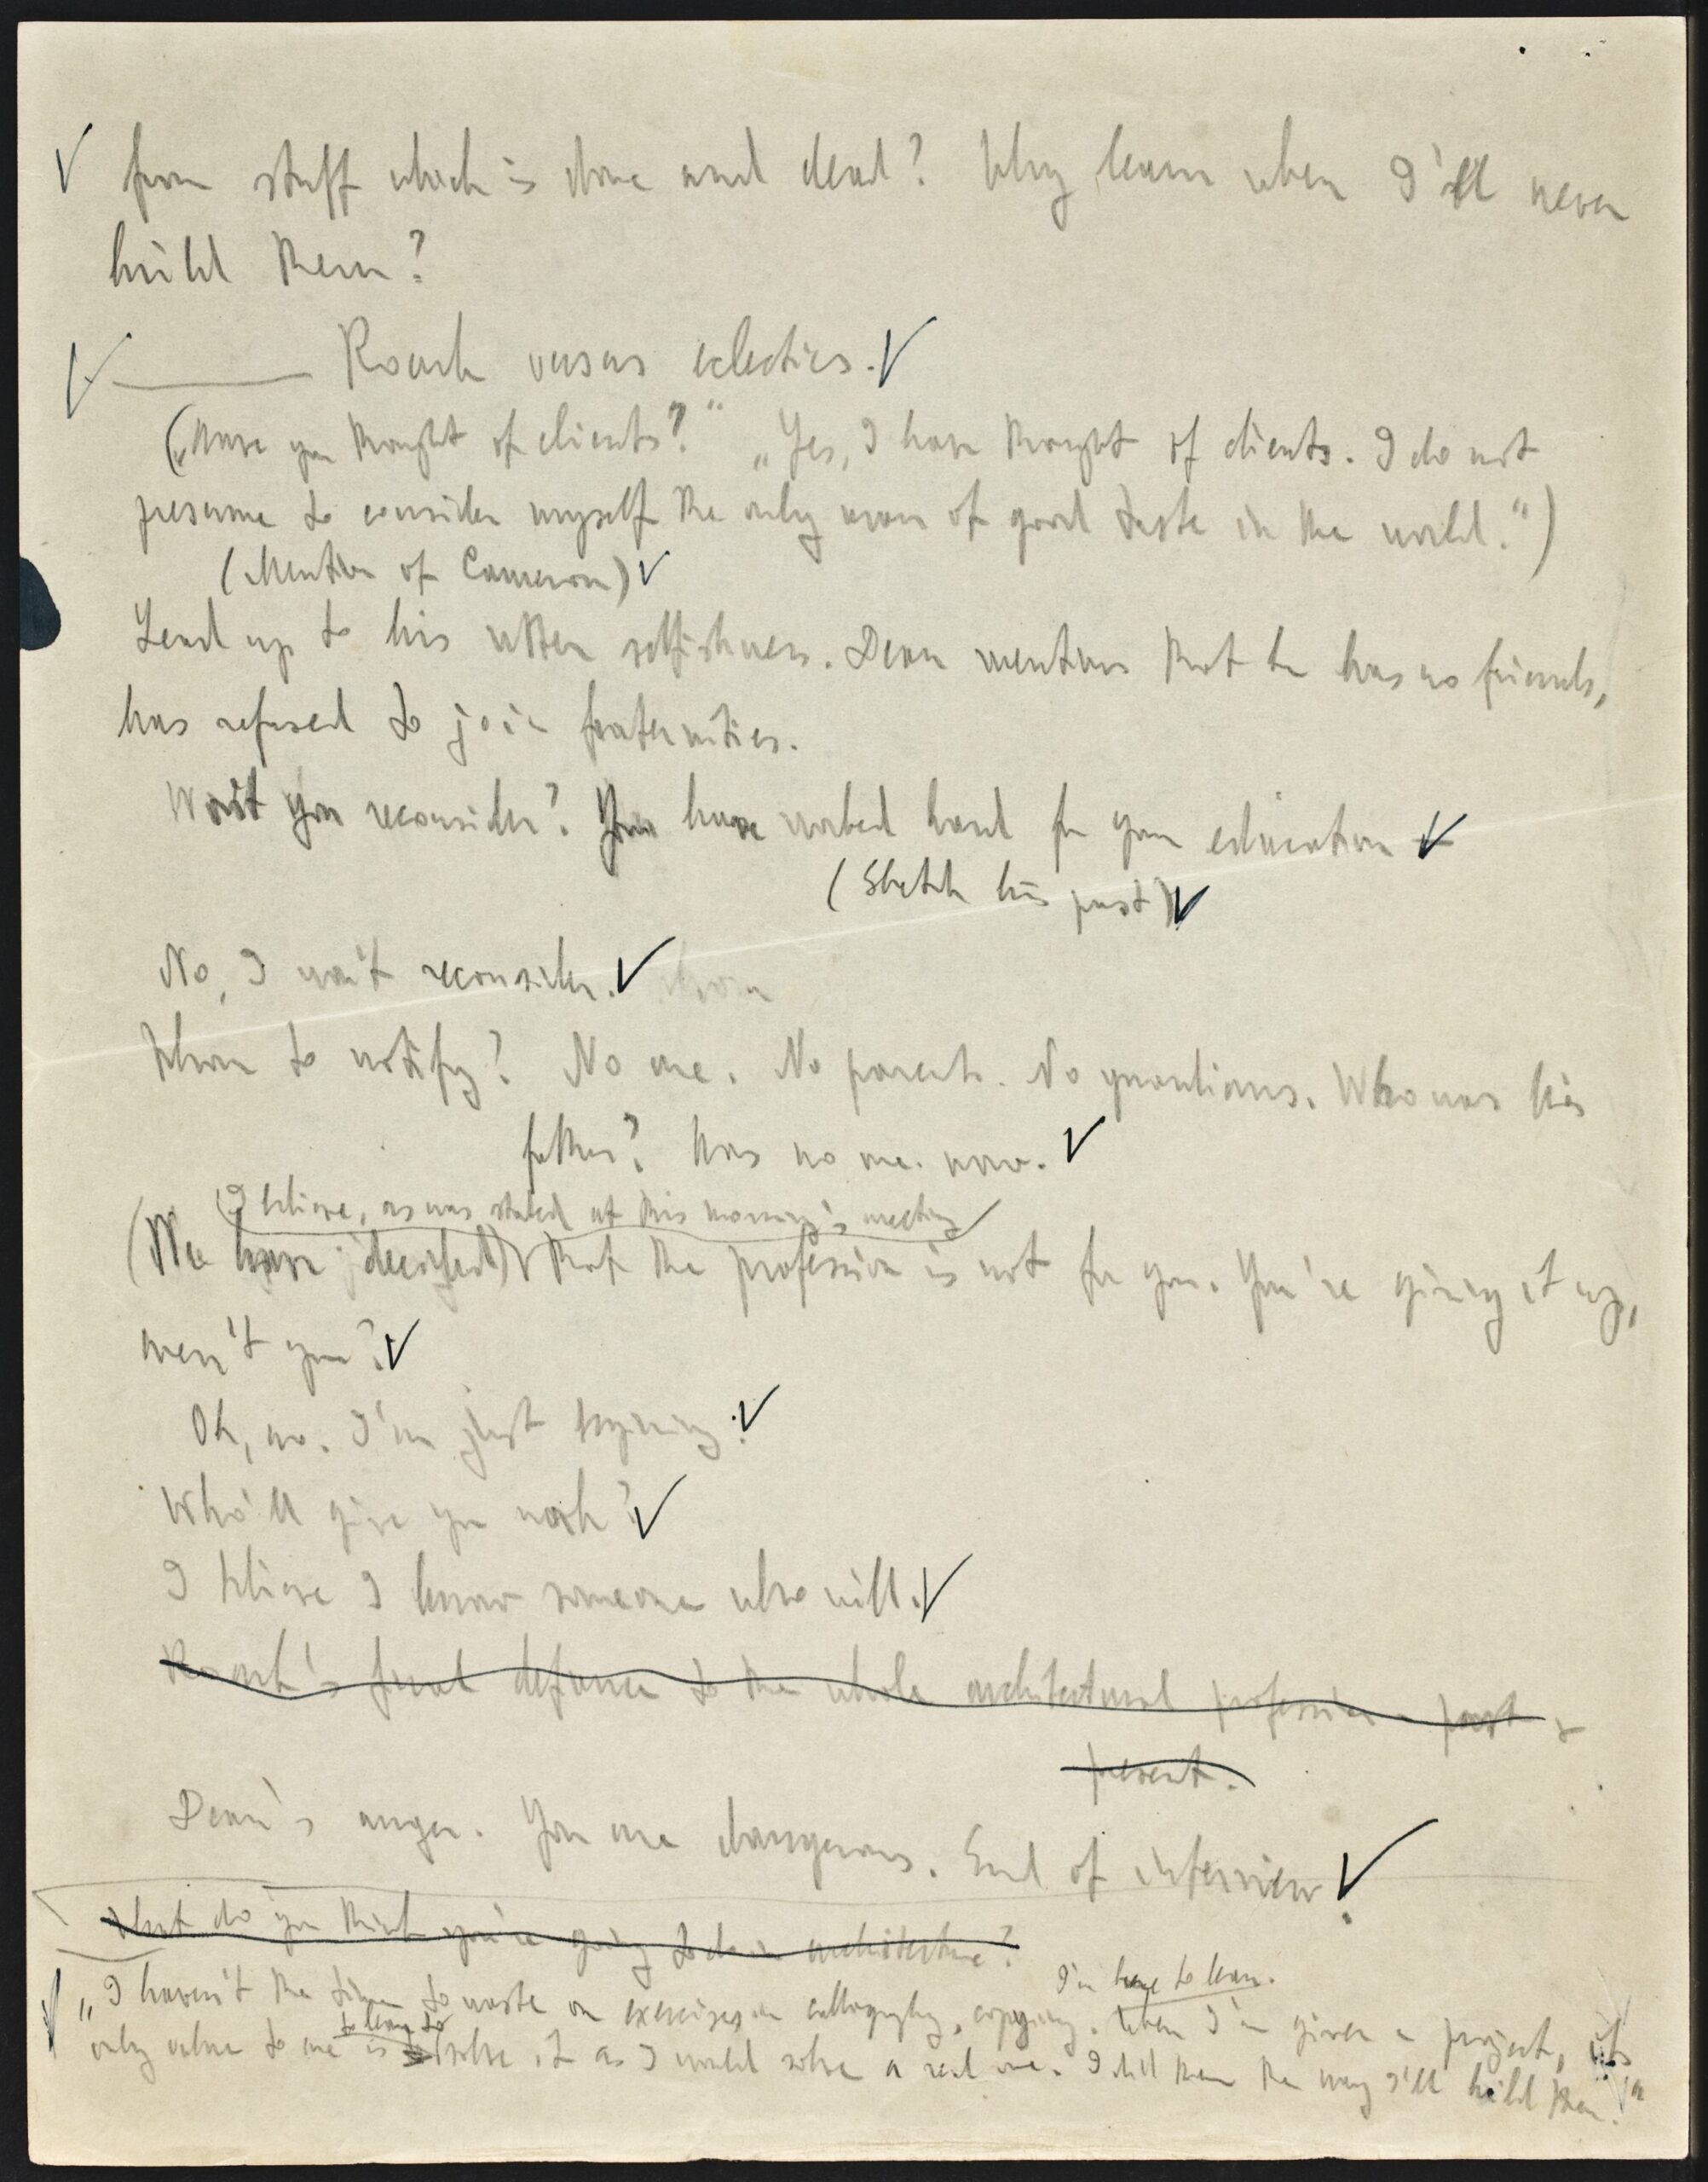 ✓ from stuff which is done and dead? Why learn when I'll never
build them?
✓ ——— Roark versus eclectics. ✓
(„Have you thought of clients?" „Yes, I have thought of clients. I do not
presume to consider myself the only man of good taste in the world.")
(Mention of Cameron) ✓
Lead up to his utter selfishness. Dean mentions that he has no friends,
has refused to join fraternities.
Won't you reconsider? You have worked hard for your education ✓
(Sketch his past) ✓
No, I won't reconsider. ✓
Whom to notify? No one. No parents. No guardians. Who was his
father? Has no one now. ✓
I believe, as was stated at this morning's meeting
(We have decided) ✓ that the profession is not for you. You're giving it up,
aren't you? ✓
Oh, no. I'm just begining. ✓
Who'll give you work? ✓
I believe I know someone who will. ✓
Roark's final defiance to the whole architectural profession – past &
present.
Dean's anger. You are dangerous. End of interview ✓
What do you think you're going to do in architecture?
I'm here to learn.
✓ „I haven't the time to waste on exercises in calligraphy, copying. When I'm given a project, its
to learn to
only value to me is solve it as I would solve a real one. I did them the way I'll build them."